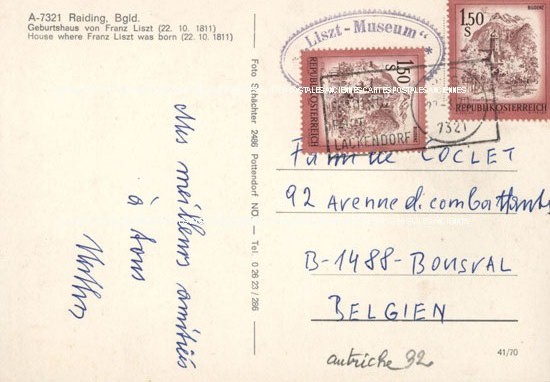 A-7321 Raiding, Bgld.
Geburtshaus von Franz Liszt (22. 10. 1811)
House where Franz Liszt was born (22. 10. 1811)
Mes meilleures amitiés
à tous
Foto Schächter 2486 Pottendorf NÖ — Tel. 0 26 23 / 286
"Liszt-Museum" *
1.50 S
REPUBLIK ÖSTERREICH
BLUDENZ
1.50 S
REPUBLIK ÖSTERREICH
LACKENDORF
7321
POSTALES ANCIENNES CARTES POSTALES ANCIENNES
Famille COCLET
92 Avenue di combattants
B-1488-BOUSVAL
BELGIEN
autriche 92
41/70